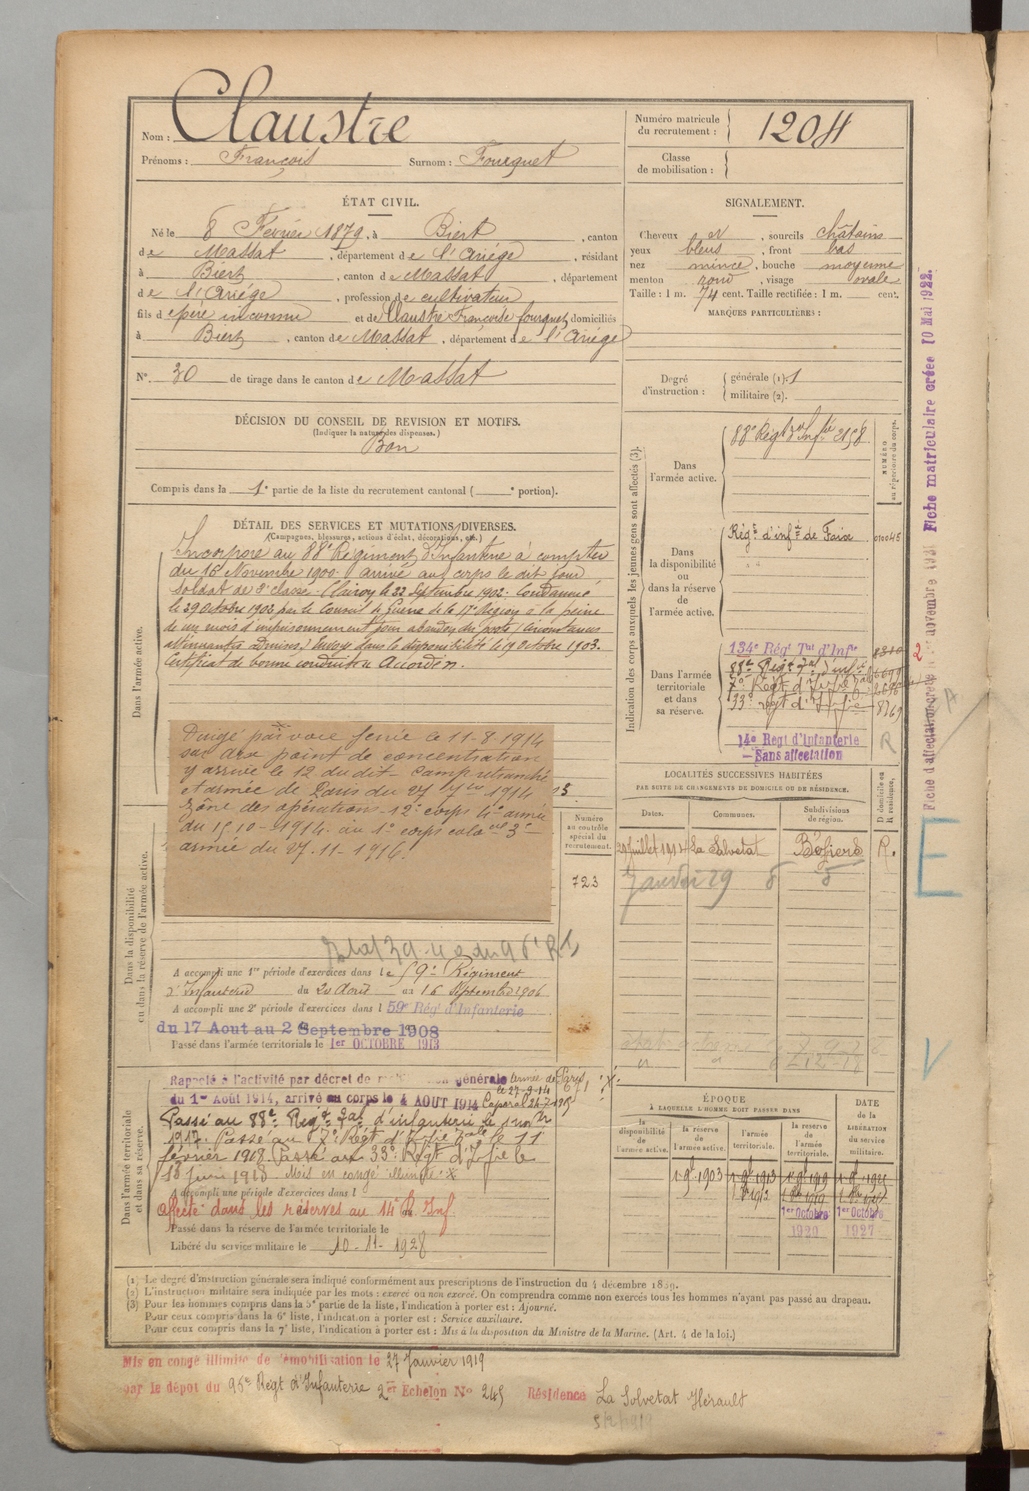 Nom : Claustre
Prénoms : François Surnom : Fourquet
Numéro matricule du recrutement : 1204
Classe de mobilisation :
ÉTAT CIVIL.
Né le 8 Février 1879, à Biert, canton
de Massat, département de l'Ariège, résidant
à Biert, canton de Massat, département
de l'Ariège, profession de cultivateur
fils de père inconnu et de Claustre Françoise fourquet, domiciliés
à Biert, canton de Massat, département de l'Ariège
N° 30 de tirage dans le canton de Massat
SIGNALEMENT.
Cheveux et, sourcils châtains
yeux bleus, front bas
nez mince, bouche moyenne
menton rond, visage ovale
Taille : 1 m. 74 cent. Taille rectifiée : 1 m. cent.
MARQUES PARTICULIÈRES :
Degré d'instruction : générale (1). 1
militaire (2).
DÉCISION DU CONSEIL DE REVISION ET MOTIFS.
(Indiquer la nature des dispenses.)
Bon
Compris dans la 1e partie de la liste du recrutement cantonal ( e portion).
DÉTAIL DES SERVICES ET MUTATIONS DIVERSES.
(Campagnes, blessures, actions d'éclat, décorations, etc.)
Dans l'armée active.
Incorporé au 88e Régiment d'Infanterie à compter
du 16 Novembre 1900. arrivé au corps le dit jour
soldat de 2e classe. Clairon le 22 Septembre 1902. Condamné
le 29 Octobre 1902 par le Conseil de Guerre de la 17e Région à la peine
de un mois d'emprisonnement pour abandon du poste (circonstances
atténuantes admises) Envoyé dans la disponibilité le 19 Octobre 1903.
Certificat de bonne conduite Accordé.
Dirigé par voie ferrée le 11-8-1914
sur
point de concentration
y arrive le 12 du dit - Camp retranché
et armée de Paris du 27
1914
Zône des opérations - 12e corps 4e armée
du 15-10-1914. au 1e corps colonial 3e
armée du 27.11-1916.
Dans la disponibilité ou dans la réserve de l'armée active.
A accompli une 1re période d'exercices dans le 59e Régiment
d'Infanterie du 20 Août au 16 Septembre 1906
A accompli une 2e période d'exercices dans l 59e Régt d'Infanterie
du 17 Aout au 2 Septembre 1908
Passé dans l'armée territoriale le 1er OCTOBRE 1913
Dans l'armée territoriale et dans sa réserve.
Rappelé à l'activité par décret de mobilisation générale
du 1er Août 1914, arrivé au corps le 4 AOUT 1914
Armée de Paris
le 27-9-14
Caporal
Passé au 88e Régt Tal d'infanterie le
1917. Passé au 7e Régt d'Infrie Tale le 11
février 1918. Passé au 33e Régt d'Infie le
18 juin 1918. Mis en congé illimité
A accompli une période d'exercices dans l
Affecté dans les réserves au 14e R. Inf.
Passé dans la réserve de l'armée territoriale le
Libéré du service militaire le 10-11-1928
Indication des corps auxquels les jeunes gens sont affectés (3).
Dans l'armée active. 88e Régt d'Infie
NUMÉRO au répertoire du corps.
Dans la disponibilité ou dans la réserve de l'armée active. Régt d'infie de Foix
Dans l'armée territoriale et dans sa réserve.
134e Régt Tal d'Infie
88e Régt Tal d'Infie
7e Régt d'Infie Tale
33e régt d'Infie
14e Regt d'Infanterie
Sans affectation
LOCALITÉS SUCCESSIVES HABITÉES
PAR SUITE DE CHANGEMENTS DE DOMICILE OU DE RÉSIDENCE.
Dates. Communes. Subdivisions de région. D domicile ou R résidence.
Juillet La Salvetat Béziers R.
Janvier 29
Numéro au contrôle spécial du recrutement.
723
ÉPOQUE
À LAQUELLE L'HOMME DOIT PASSER DANS
la disponibilité de l'armée active. la réserve de l'armée active. l'armée territoriale. la réserve de l'armée territoriale.
DATE DE LA LIBÉRATION du service militaire.
1903 1913 1919
1er Octobre 1er Octobre
1920 1927
(1) Le degré d'instruction générale sera indiqué conformément aux prescriptions de l'instruction du 4 décembre 1889.
(2) L'instruction militaire sera indiquée par les mots : exercé ou non exercé. On comprendra comme non exercés tous les hommes n'ayant pas passé au drapeau.
(3) Pour les hommes compris dans la 5e partie de la liste, l'indication à porter est : Ajourné.
Pour ceux compris dans la 6e liste, l'indication à porter est : Service auxiliaire.
Pour ceux compris dans la 7e liste, l'indication à porter est : Mis à la disposition du Ministre de la Marine. (Art. 4 de la loi.)
Mis en congé illimité de démobilisation le 27 Janvier 1919
par le dépôt du 96e Régt d'Infanterie 2e Echelon N° 245 Résidence La Salvetat Hérault
Fiche matriculaire créée 10 Mai 1922.
E
V